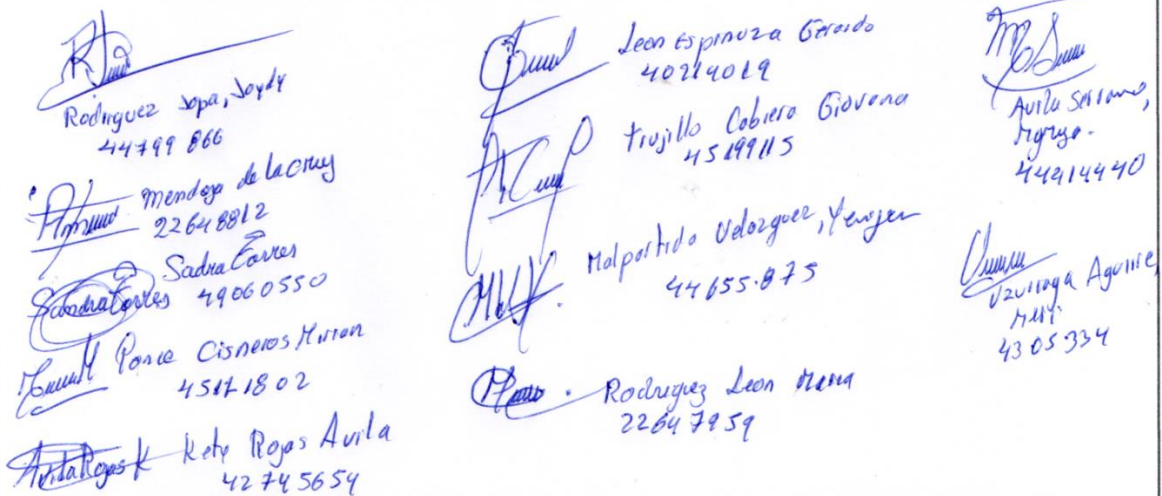 Rodriguez Jopa, Joydy
44799 866
Mendoza de la cruz
22648812
Sadra Torres
Sandra Torres
49060550
Ponce Cisneros Mirian
45171802
Avila Rojas K
Kety Rojas Avila
42745654
Leon Espinoza Gerardo
40214019
Trujillo Cabrera Giovana
45199115
Malpartida Velazquez, Yenojen
44655.875
Rodriguez Leon Maria
22647959
Avila Serrano,
44214440
Uzuriaga Aguirre,
Mery
4305334